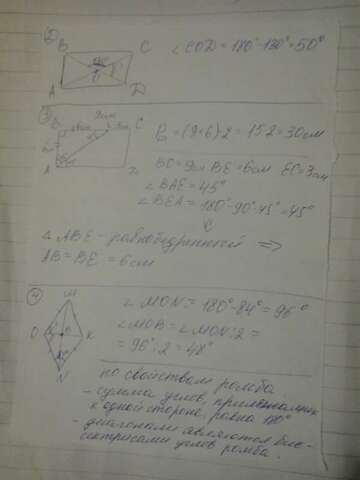 ②
B C
A D
O
∠COD = 180° - 130° = 50°
③
9см
B 6см 3см C
A D
P = (9+6)·2 = 15·2 = 30см
BC = 9см BE = 6см EC = 3см
∠BAE = 45°
∠BEA = 180° - 90° - 45° = 45°
∆ ABE - равнобедренный =>
AB = BE = 6см
④
M
O K
N
∠MON = 180° - 84° = 96°
∠MOB = ∠MON : 2 =
= 96° : 2 = 48°
по свойствам ромба:
- сумма углов, прилежащих
к одной стороне, равна 180°
- диагонали являются бис-
сектрисами углов ромба.